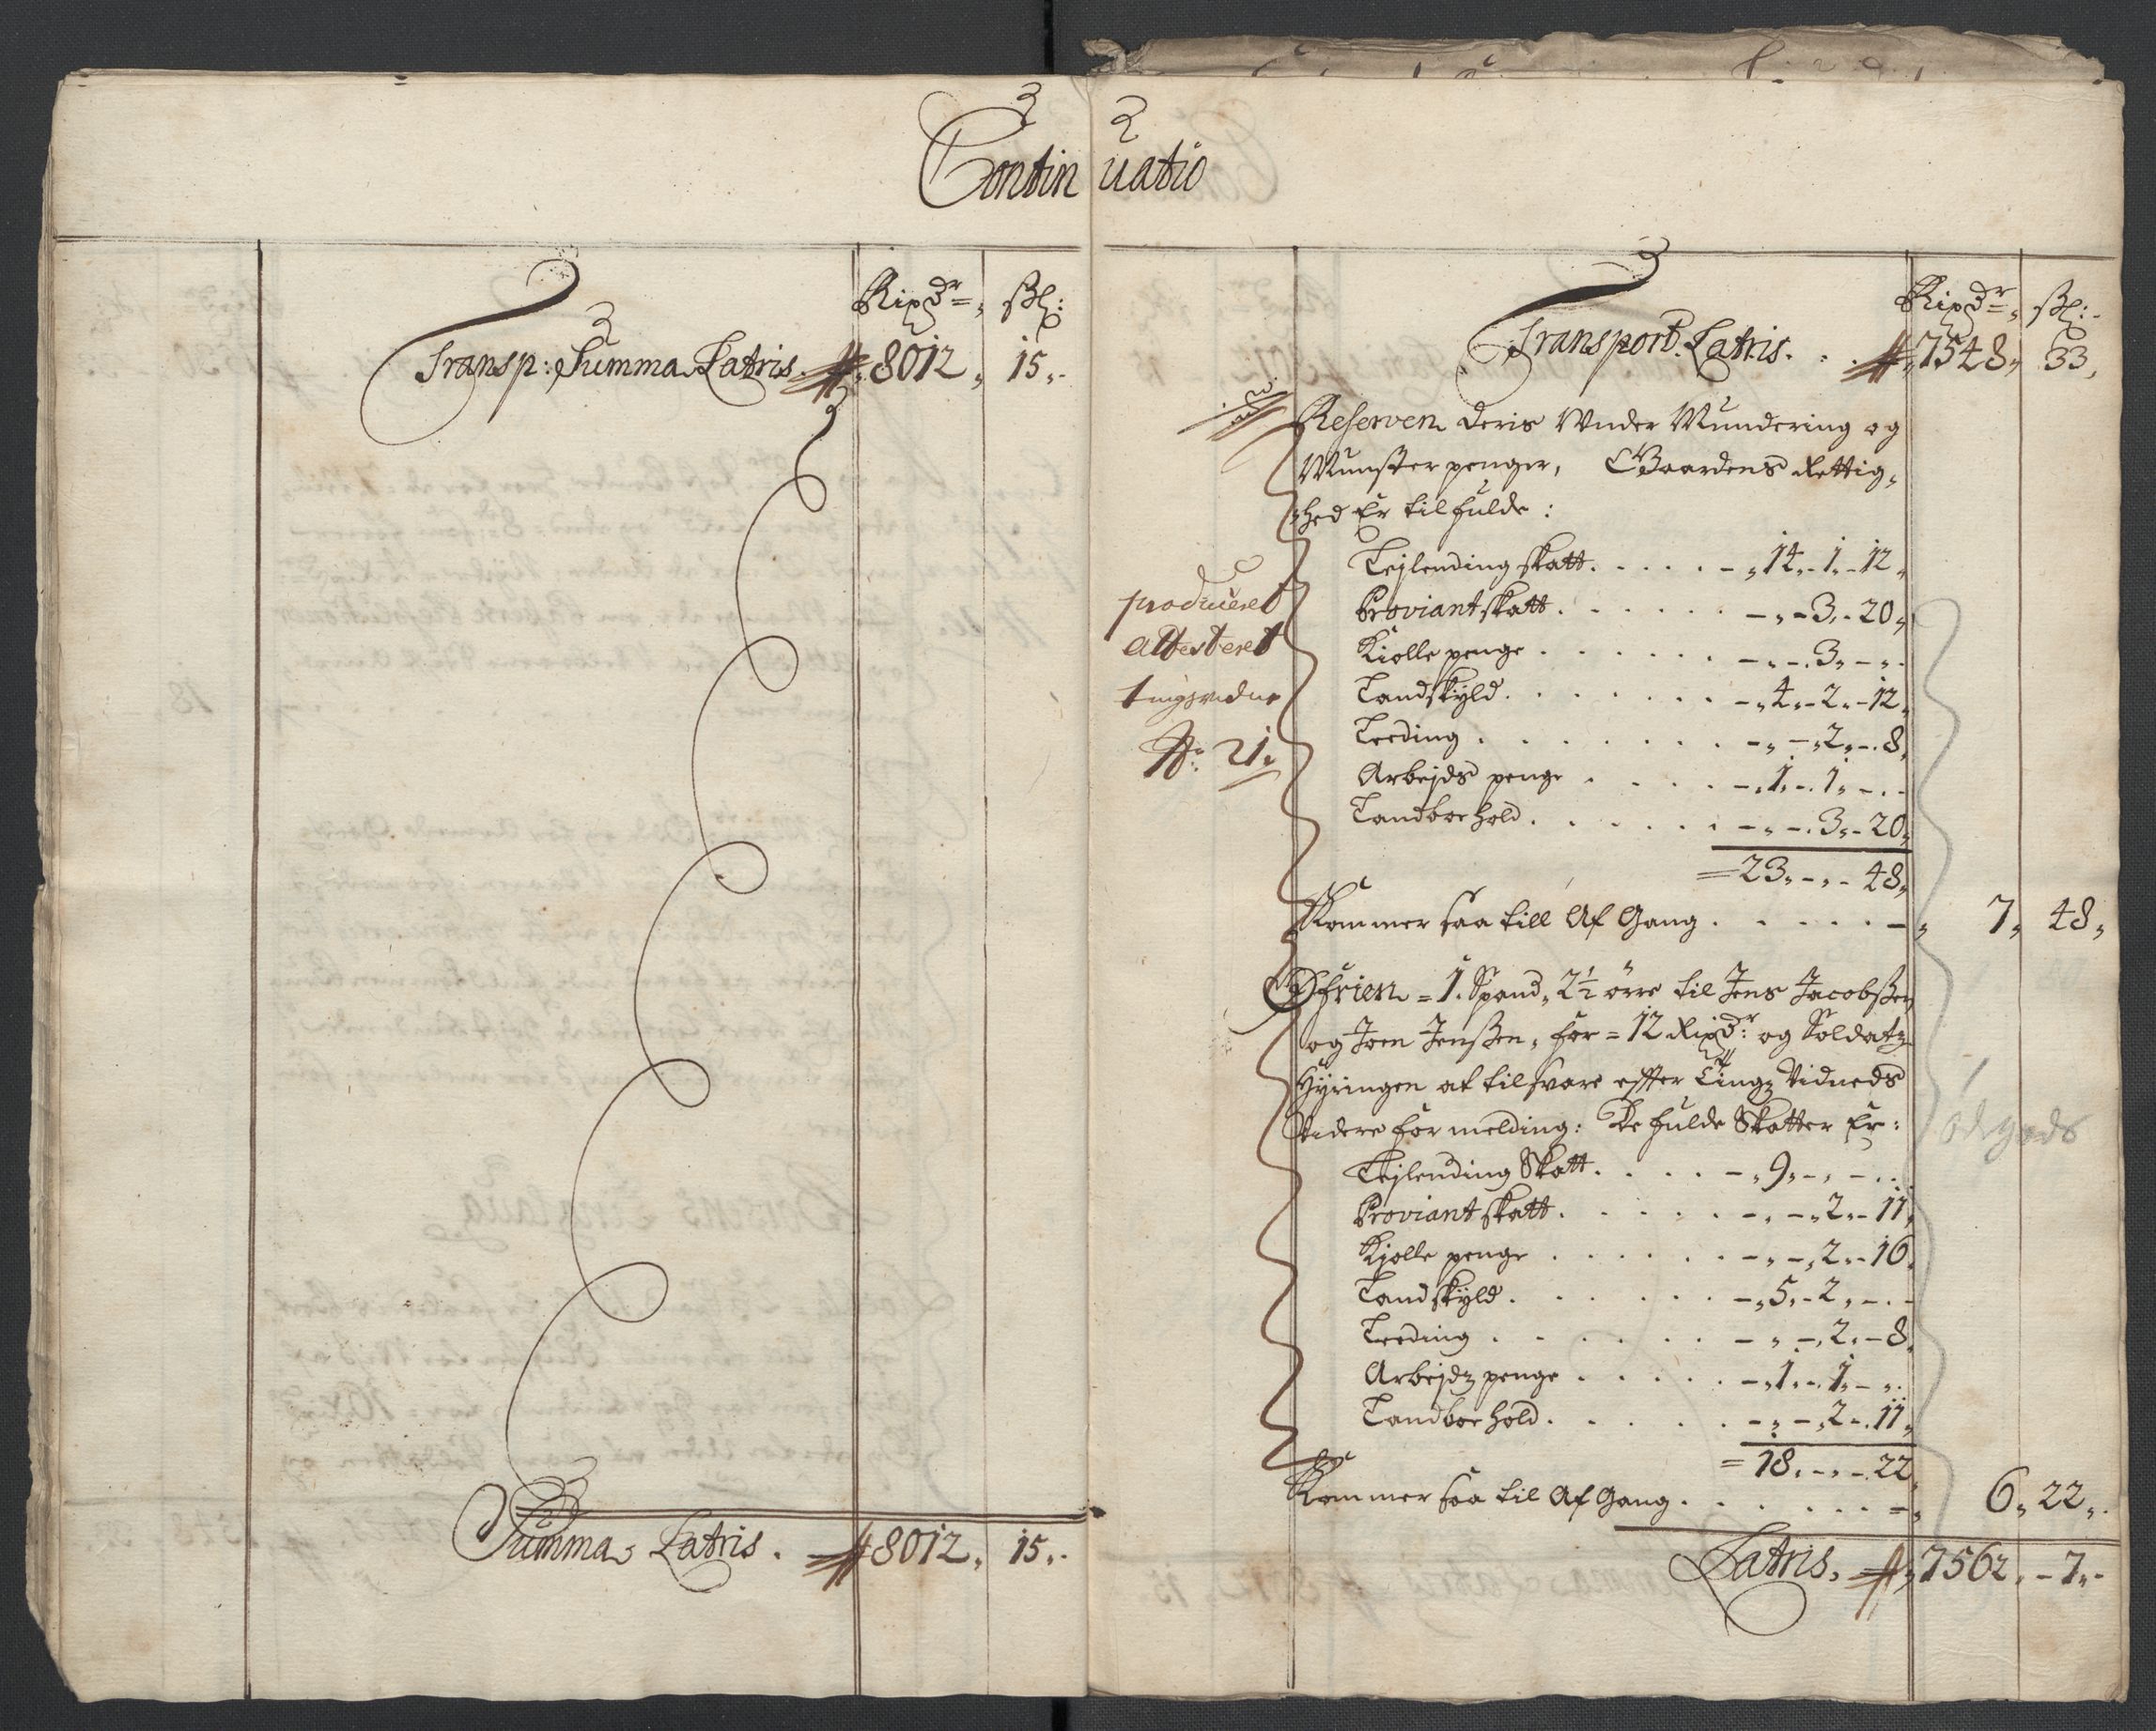 Continuatio
Rixdr. ßl:
Transp: Summa Latris. 8012. 15.
Summa Latris. 8012. 15.
Rixdr. ßl:
Transport Latris. . . 7548. 33.
Reserven deris Under Mundering og
Munster penger, Gaardens Rettig-
hed Er til fulde:
Leylending skatt. . . . . 14. 1. 12.
Proviant skatt. . . . . - 3. 20.
Kiolle penge . . . . . - 3. - .
Landskyld. . . . . 4. 2. 12.
Leeding . . . . . - 2. 8.
Arbejds penge . . . . 1. 1. -
Landboe hold. . . . . - 3. 20.
= 23. - 48.
Kommer saa till Af Gang . . . . . 7. 48.
produceret
attesteret
tingsvidne
N: 21.
Øfrien = 1. Spand, 2½ örre til Jens Jacobßen
og Joen Jenßen, for = 12 Rixdr: og Soldatz
Hyringen at tilsvare effter Tingz Vidneds
Videre for melding: De fulde Skatter Er:
Leylending Skatt. . . . . 9. - -
Proviant skatt. . . . . - 2. 11.
Kjolle penge . . . . . - 2. 16.
Landskyld . . . . . 5. 2. -
Leeding . . . . . - 2. 8.
Arbejdz penge . . . . . 1. 1. -
Landboe hold. . . . . - 2. 11.
= 18. - 22.
Kommer saa til Af Gang . . . . . . 6. 22.
ödegods
Latris. 7562. 7.